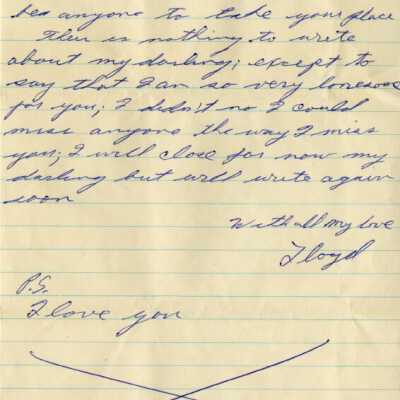 bea anyone to take your place
Their is nothing to write
about my darling; except to
say that I am so very lonesome
for you; I didn't no I could
miss anyone the way I miss
you; I will close for now my
darling but will write again
soon
With all my love
Floyd
P.S.
I love you